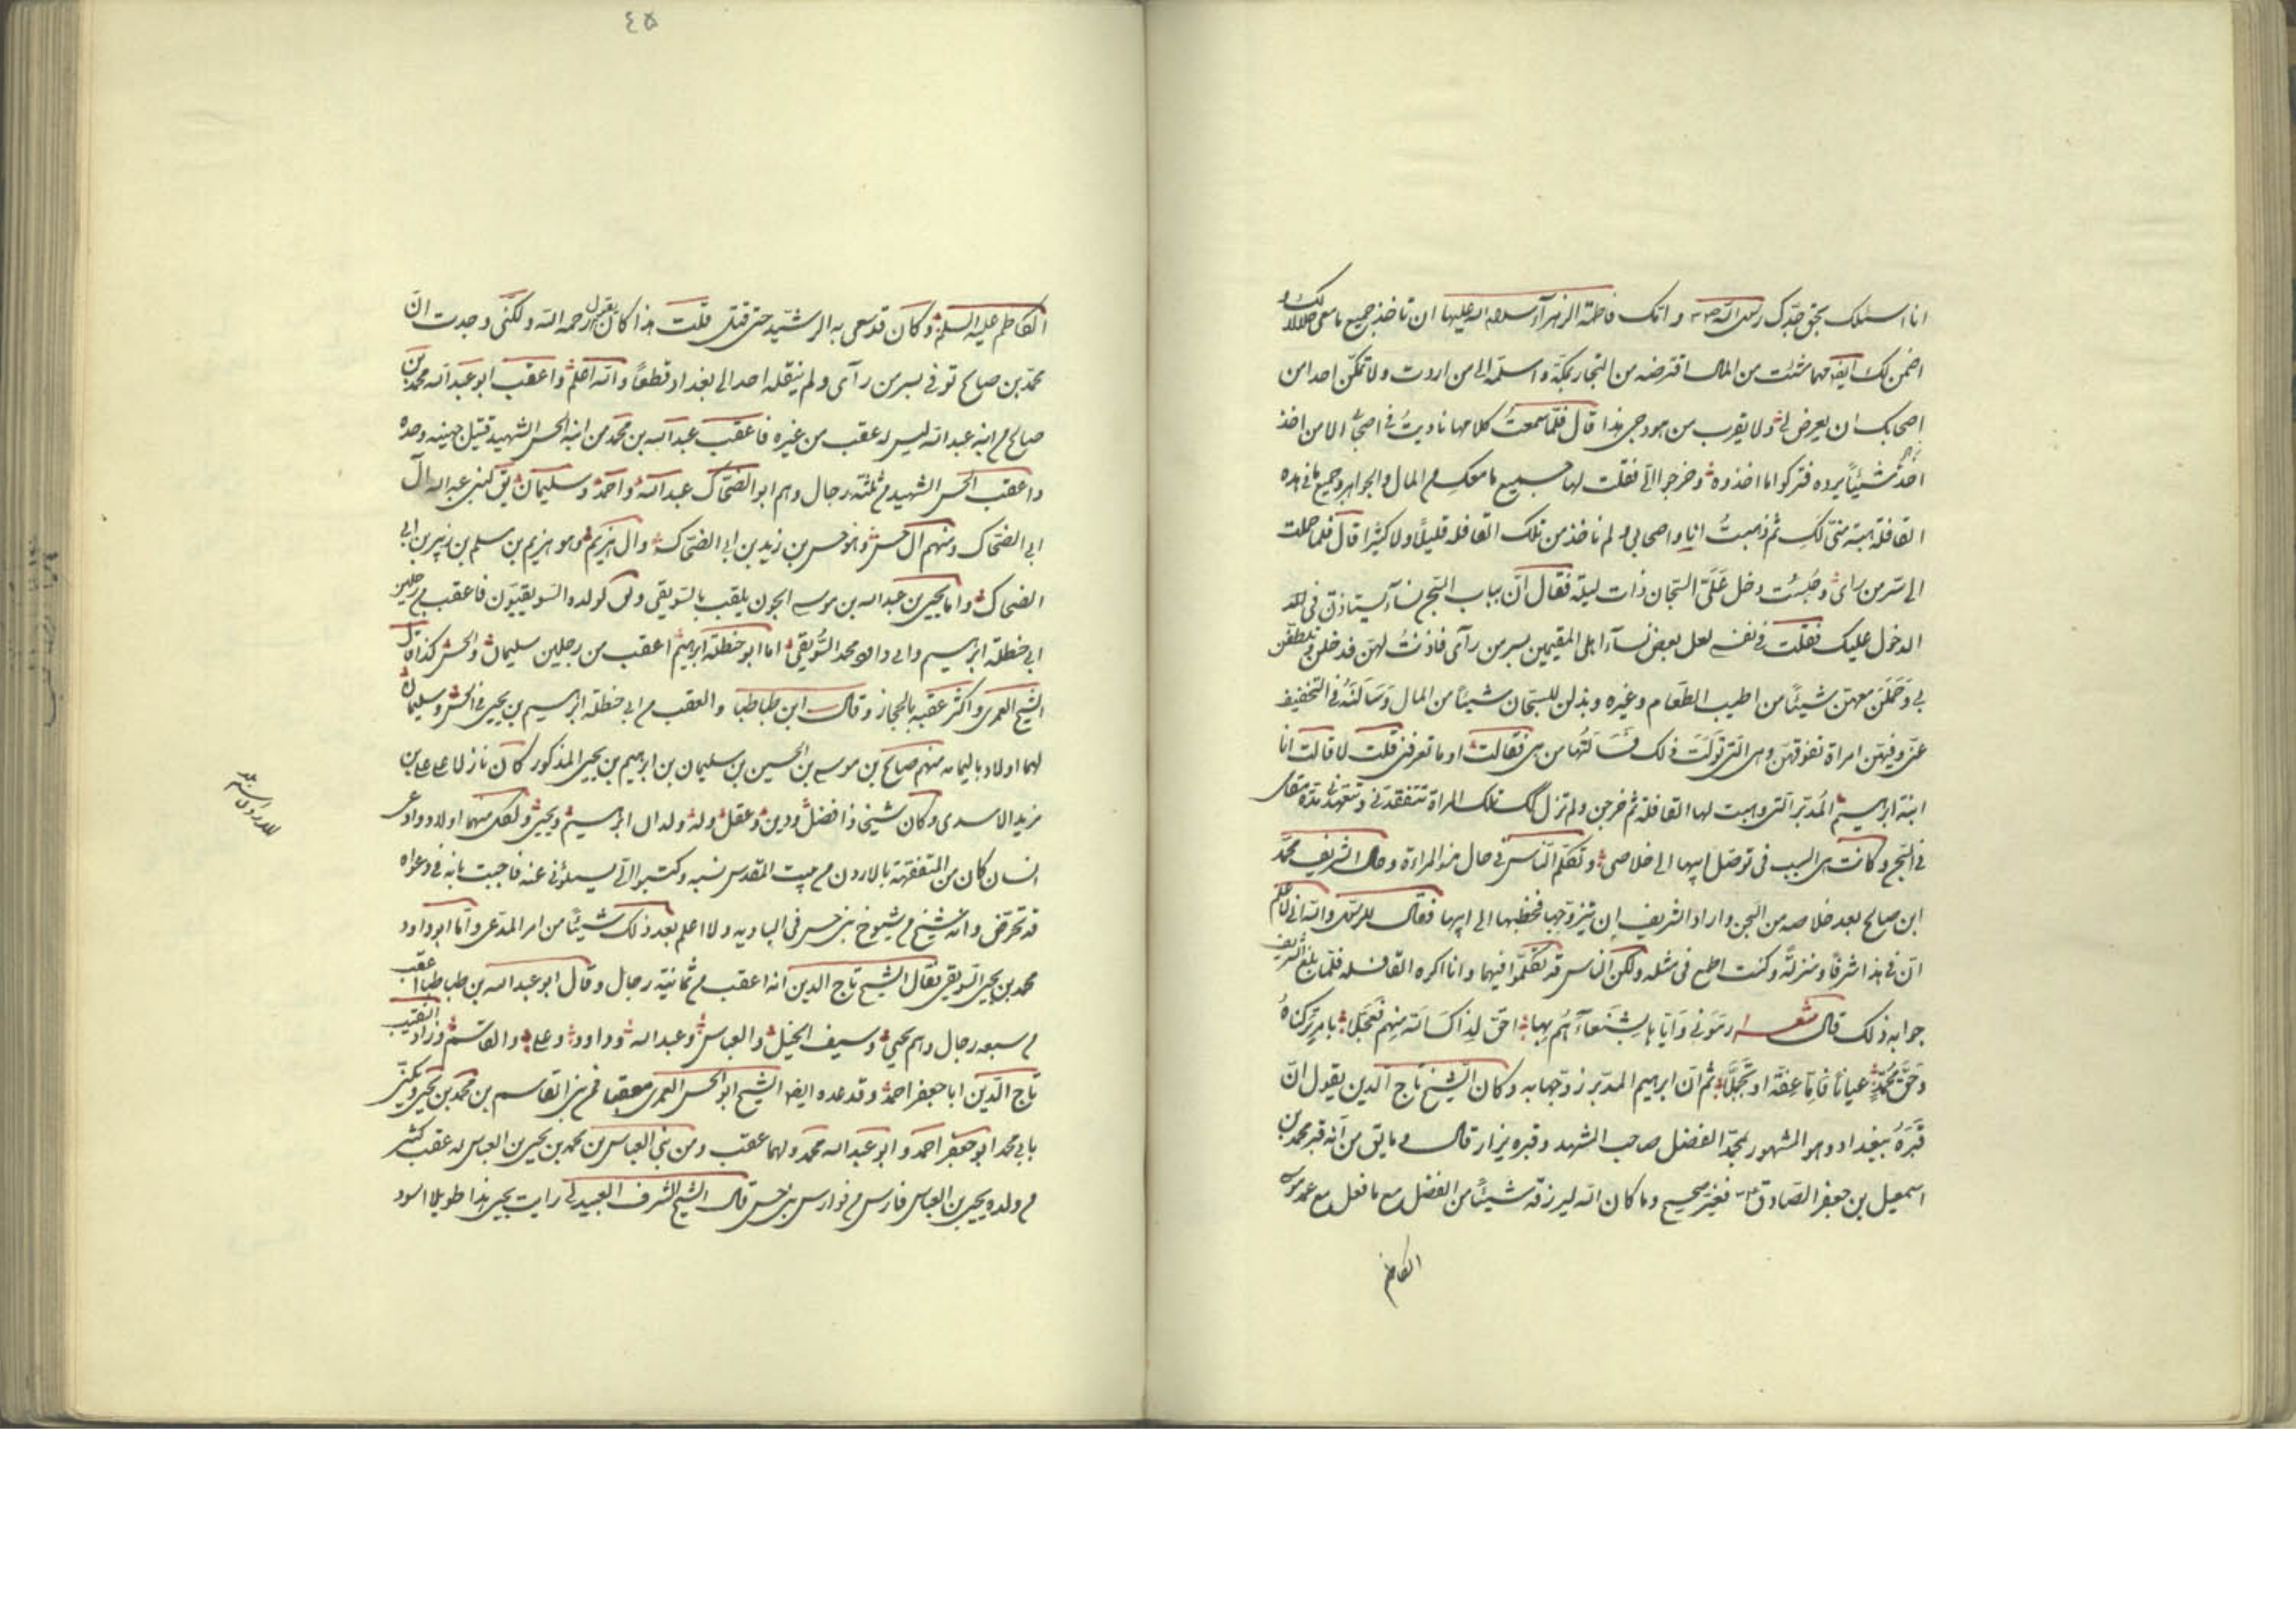 انا اسئلك بحق جدّك رسول الله ص و امك فاطمة الزهرآء سلام الله عليها ان تاخذ جميع ما معى حلالا لك و
اضمن لك ايضا مهما شئت من المال اقترضه من التجار بمكة و اسلمه الى من اردت ولا تمكّن احدا من
اصحابك ان يعرض لى ولا يقرب من هودجى هذا قال فلمّا سمعتُ كلامها ناديتُ فى اصحابى الا من اخذ
شيئاً يرده فتركوا ما اخذوه و خرجوا الىّ فقلت لها جميع ما معك من المال و الجواهر و جميع ما فى هذه
القافلة هبة منّى لكِ ثم ذهبتُ انا و اصحابى و لم ناخذ من تلك القافله قليلًا ولا كثيرًا قال فلما حملت
الى سر من راى و حُبِسْت دخل عَلَىَّ السّجان ذات ليلة فقال انّ بباب السّجن نسآء يستاذنّ فى
الدخول عليك فقلت فى نفسى لعل بعض نسآء اهلى المقيمين بسر من رآى فاذنتُ لهنّ فدخلن و تلطّفن
بى وَحَمَلْنَ معهنّ شيئًا من اطيب الطّعام وغيره و بذلن للسجّان شيئًا من المال وَسَأَلْنَهُ فى التخفيف
عنّى و فيهنّ امراة تفوقهنّ وهى التى تولّت ذلك فَسَألتُها من هى فقالت او ما تعرفنى قلت لا قالت انا
ابنة ابراهيم المُدبّر التى وهبت لها القافلة ثم خرجن ولم تزل تلك المراة تتفقدنى و تتعهدنى مدة مقامى
فى السّجن و كانت هى السبب فى توصّل ابيها الى خلاصى و تكلّم النّاس فى حال هذه المراءة و حال الشريف محمّد
ابن صالح بعد خلاصه من السّجن و اراد الشريف ان يتزوّجها فخطبها الى ابيها فقال للرسول والله انى لاعلم
انّ فى هذا شرفًا و منزلةً و كنت اطمع فى مثله ولكن النّاس قد تكلّموا فيهما و انا اكره القالة فلمّا بلغ الشريف
جوابه ذلك قال شعر رمَونى وَايّاها بِشَنعآءَ هُم بِها احَقّ اذا كَ الله منهم فعَجّلا بامر تركناهُ
وَحَقّ مُحمّدٍ عيانًا فامّا عفّةً او تجمّلا ثم انّ ابراهيم المدبر زوّجها به و كان الشّيخ تاج الدين يقول انّ
قَبرَهُ ببغداد و هو المشهور بمحمّد الفضل صاحب المشهد و قبره يزار قال و ما يق من انّه قبر محمد بن
اسمعيل بن جعفر الصّادق ع فغير صحيح و ما كان الله ليرزقه شيئًا من الفضل مع ما فعل مع عمه موسى
الكاظم
٤٥
الكاظم عليه السلم و كان قد سعى به الى الرشيد حتى قتل قلت هذا كان يقول رحمه الله ولكنّى وجدت انّ
محمّد بن صالح توفى بسر من رآى ولم ينقله احد الى بغداد قطعًا و الله اعلم و اعقب ابو عبد الله محمد بن
صالح من ابنه عبد الله ليس له عقب من غيره فاعقب عبد الله بن محمد من ابنه الحسن الشهيد قتيل جهينه وحده
و اعقب الحسن الشهيد من ثلثة رجال وهم ابو الضحّاك عبد الله و احمد و سليمان يق لبنى عبد الله آل
ابى الضحّاك و منهم آل حسن وهو حسن بن زيد بن ابى الضحّاك و آل هزيم وهو هزيم بن مسلم بن زهير بن ابى
الضحاك و اما يحيى بن عبد الله بن موسى الجون يلقب بالسّويقى و لولده السّويقيّون فاعقب من رجلين
ابى حنظلة ابراهيم و ابى داود محمد السُّويقى اما ابو حنظلة ابراهيم اعقب من رجلين سليمان و الحسن كذا قال
الشيخ العمرى و اكثر عقبه بالحجاز و قال ابن طباطبا و العقب من ابى حنظلة ابراهيم بن يحيى فى الحسن و سليمان
لهما اولاد باليمامه منهم صالح بن موسى بن الحسين بن سليمان بن ابراهيم بن يحيى المذكور كان نازلا على على بن
مزيد الاسدى و كان شيخًا ذا فضل و دين و عقل و له ولدان ابراهيم و يحيى و لكل منهما اولاد و ادعى
انسان كان من المتفقهة بالاردن من بيت المقدس نسبه و كتبوا الىّ يسئلونى عنه فاجبت بانه فى دعواه
قد تخرّص و انه شيخ من شيوخ بنى حسن فى الباديه ولا اعلم بعد ذلك شيئًا من امر المدّعى و امّا ابو داود
محمد بن يحيى السّويقى فقال الشيخ تاج الدين انه اعقب من ثمانية رجال و قال ابو عبد الله بن طباطبا اعقب
من سبعه رجال وهم يحيى و سيف الخيل و العباس و عبد الله و داود و على و القاسم و زاد النقيب
تاج الدّين ابا جعفر احمد و قد عده ايضا الشيخ ابو الحسن العمرى معقبا فمن بنى القاسم بن محمد بن يحيى و يكنّى
بابى محمد ابو جعفر احمد و ابو عبد الله محمد و لهما عقب و من بنى العباس بن محمد بن يحيى بن العباس له عقب كثير
من ولده يحيى بن العباس فارس من فوارس بنى حسن قال الشيخ الشرف العبيدلى رايت يحيى هذا طويلا اسود